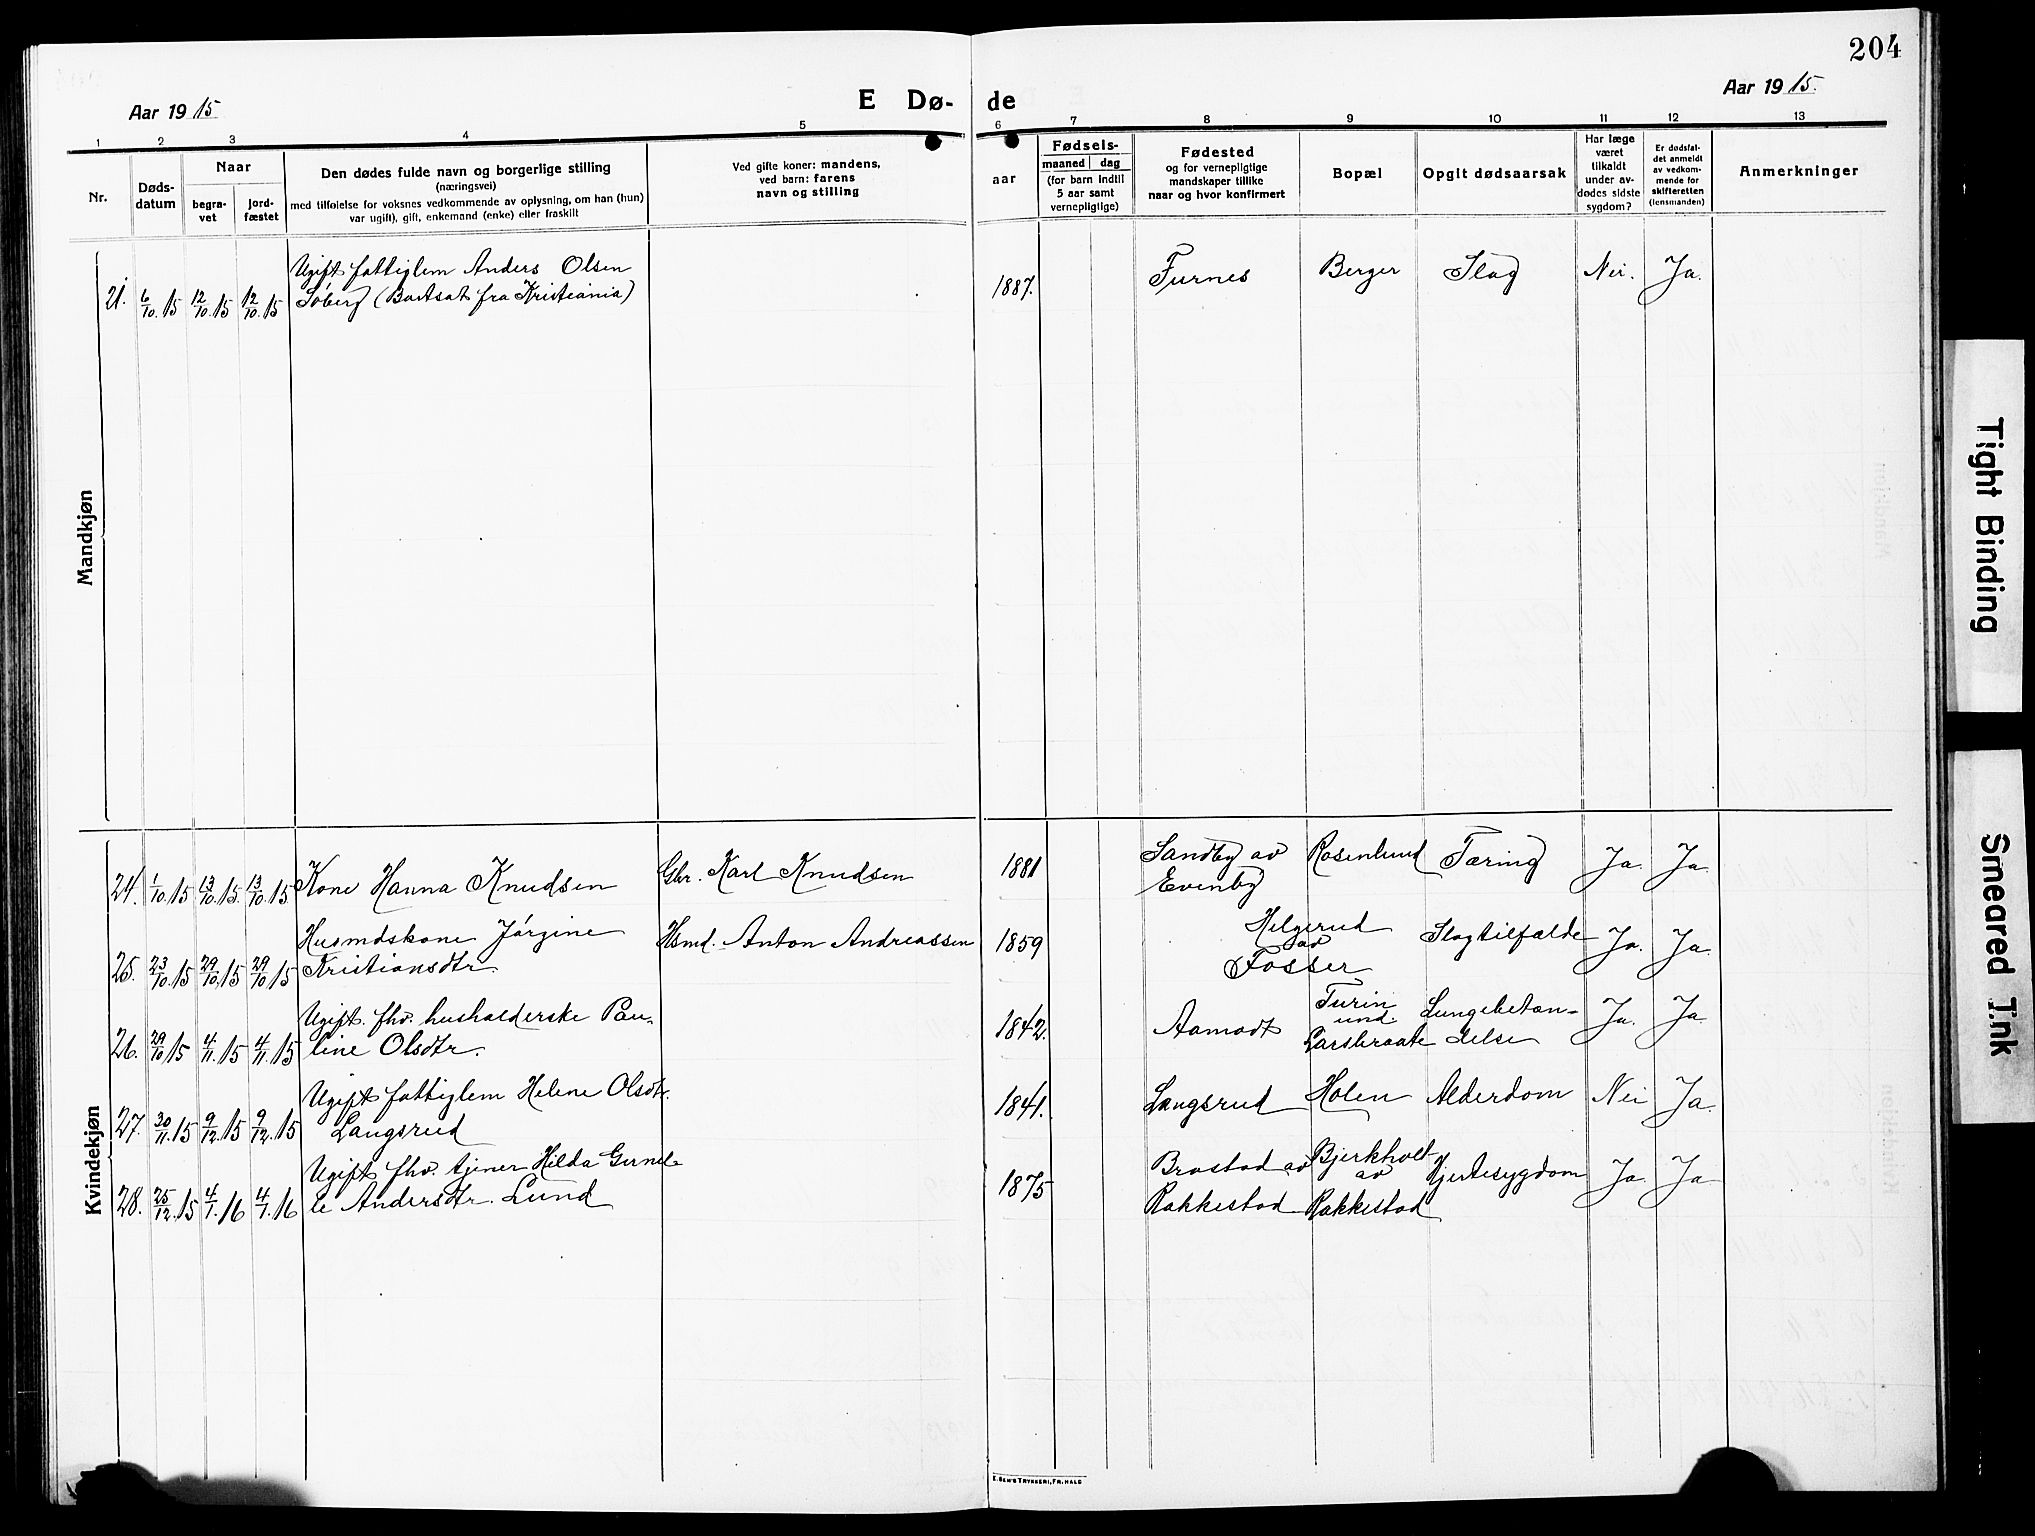 204
Aar 1915
E Dø-
de
Aar 1915.
1 2 3 4 5 6 7 8 9 10 11 12 13
Nr.
Døds-
datum
Naar
begra-
vet
jord-
fæstet
Den dødes fulde navn og borgerlige stilling
(næringsvei)
med tilføielse for voksnes vedkommende av oplysning, om han (hun)
var ugift), gift, enkemand (enke) eller fraskilt
Ved gifte koner: mandens,
ved barn: farens
navn og stilling
aar
Fødsels-
maaned dag
(for barn indtil
5 aar samt
vernepligtige)
Fødested
og for vernepligtige
mandskaper tillike
naar og hvor konfirmert
Bopæl
Opgit dødsaarsak
Har læge
været
tilkaldt
under av-
dødes sidste
sygdom?
Er dødsfal-
det anmeldt
av vedkom-
mende for
skifteretten
(lensmanden)
Anmerkninger
Mandkjøn
Ugift fattiglem Anders Olsen Furnes Berger Slag Nei. Ja.
21. 6/10.15 12/10.15 12/10.15 Söberg (Bortsat fra Kristiania) 1887.
Kvindekjøn
Sandby av Rosenlund Tæring Ja. Ja.
24. 1/10.15 13/10.15 13/10.15 Kone Hanna Knudsen Gbr. Karl Knudsen 1881 Evenby
Husmdskone Jörgine Hsmd. Anton Andreassen 1859 Helgerud Slagtilfælde Ja. Ja.
av
25. 23/10.15 29/10.15 29/10.15 Kristiansdtr. Fosser
Ugift. fhv. husholderske Pau- 1842. Aamodt Turin Lungebetæn- Ja. Ja
und.
26. 29/10.15 4/11.15 4/11.15 line Olsdtr. Larsbraate delse
Ugift fattiglem Helene Olsdtr. 1841. Langsrud Holen Alderdom Nei Ja.
27. 30/11.15 9/12.15 9/12.15 Langsrud
Ugift fhv. tjener Hilda Gunel- 1875 Brostad av Bjerkholt Hjertesygdom Ja. Ja
av
28. 25/12.15 4/1.16 4/1.16 le Andersdtr. Lund Rakkestad Rakkestad
E. SEM'S TRYKKERI, FR.HALD
Tight Binding
Smeared Ink